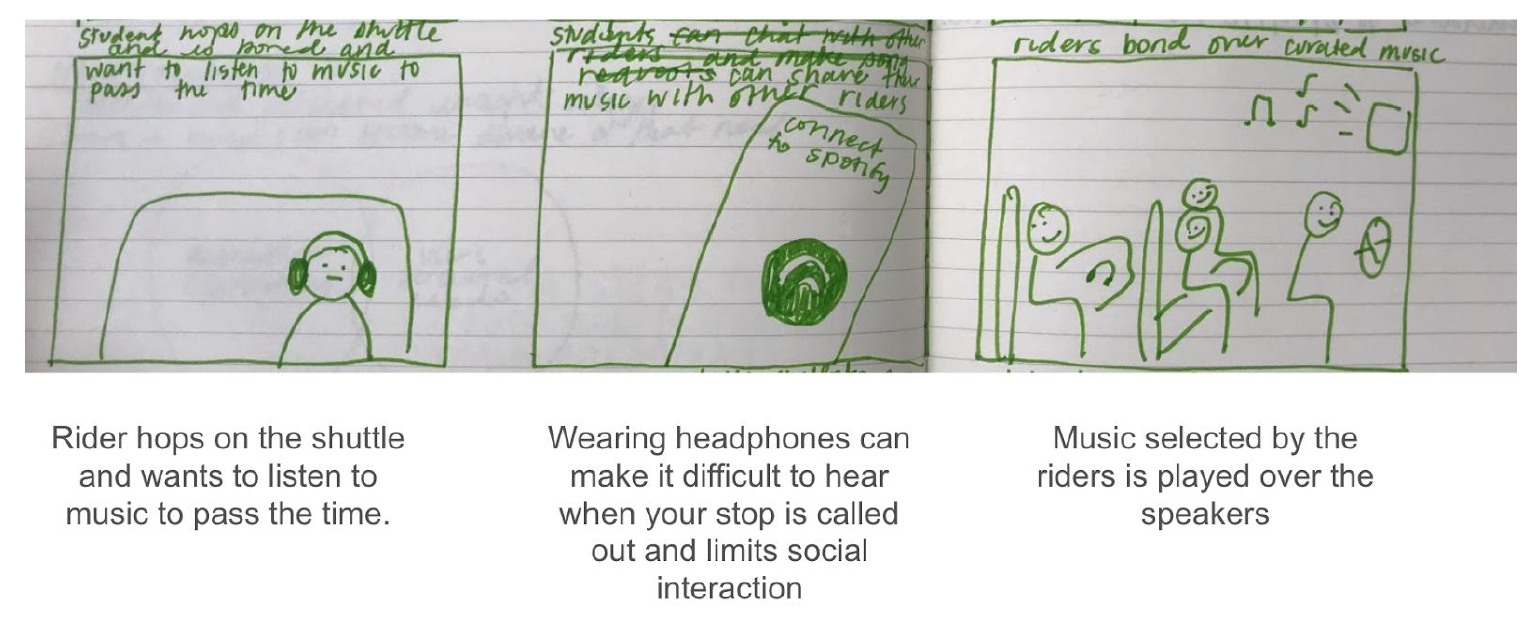 student hops on the shuttle
and is bored and
want to listen to music to
pass the time
students can chat with other
riders and make song
requests can share their
music with other riders
connect
to spotify
riders bond over curated music
Rider hops on the shuttle
and wants to listen to
music to pass the time.
Wearing headphones can
make it difficult to hear
when your stop is called
out and limits social
interaction
Music selected by the
riders is played over the
speakers